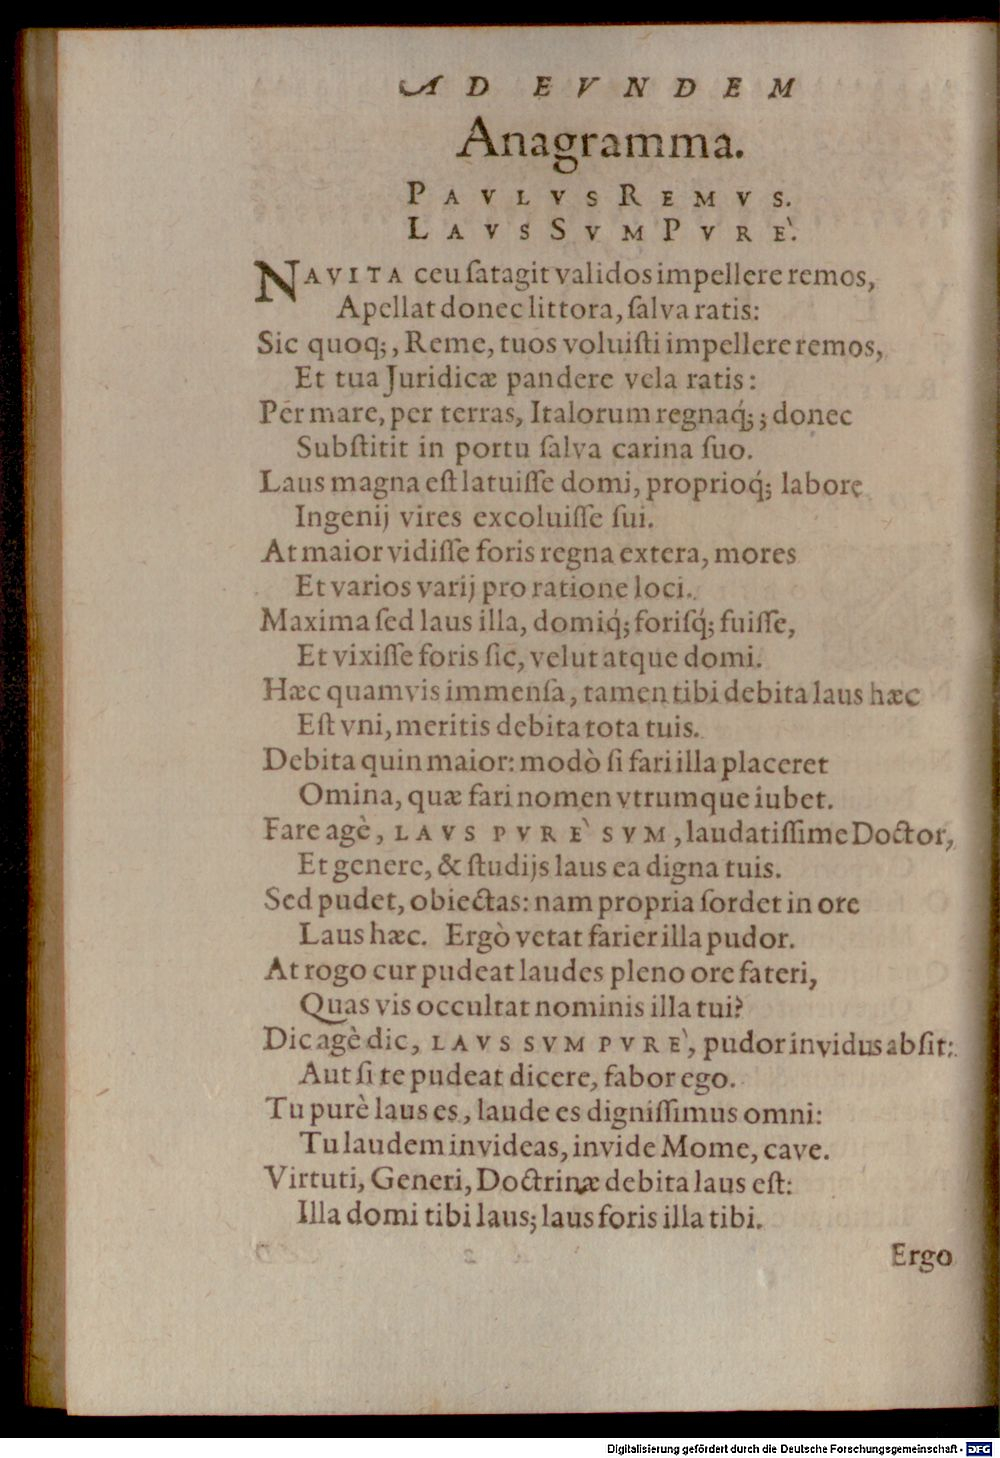 AD EVNDEM
Anagramma.
PAVLVS REMVS.
LAVS SVM PVRÈ.
NAVITA ceu ſatagit validos impellere remos,
Apellat donec littora, ſalva ratis:
Sic quoq;, Reme, tuos voluiſti impellere remos,
Et tua Juridicæ pandere vela ratis:
Per mare, per terras, Italorum regnaq́;; donec
Subſtitit in portu ſalva carina ſuo.
Laus magna eſt latuiſſe domi, proprioq́; labore
Ingenij vires excoluiſſe ſui.
At maior vidiſſe foris regna extera, mores
Et varios varij pro ratione loci.
Maxima ſed laus illa, domiq́; foriſq́; fuiſſe,
Et vixiſſe foris ſic, velut atque domi.
Hæc quamvis immenſa, tamen tibi debita laus hæc
Eſt vni, meritis debita tota tuis.
Debita quin maior: modò ſi fari illa placeret
Omina, quæ fari nomen vtrumque iubet.
Fare agè, LAVS PVRÈ SVM, laudatiſſime Doctor,
Et genere, & ſtudijs laus ea digna tuis.
Sed pudet, obiectas: nam propria ſordet in ore
Laus hæc. Ergò vetat farier illa pudor.
At rogo cur pudeat laudes pleno ore fateri,
Quas vis occultat nominis illa tui?
Dic agè dic, LAVS SVM PVRÈ, pudor invidus abſit:
Aut ſi te pudeat dicere, fabor ego.
Tu purè laus es, laude es digniſſimus omni:
Tu laudem invideas, invide Mome, cave.
Virtuti, Generi, Doctrinæ debita laus eſt:
Illa domi tibi laus; laus foris illa tibi.
Ergo
Digitalisierung gefördert durch die Deutsche Forschungsgemeinschaft - DFG